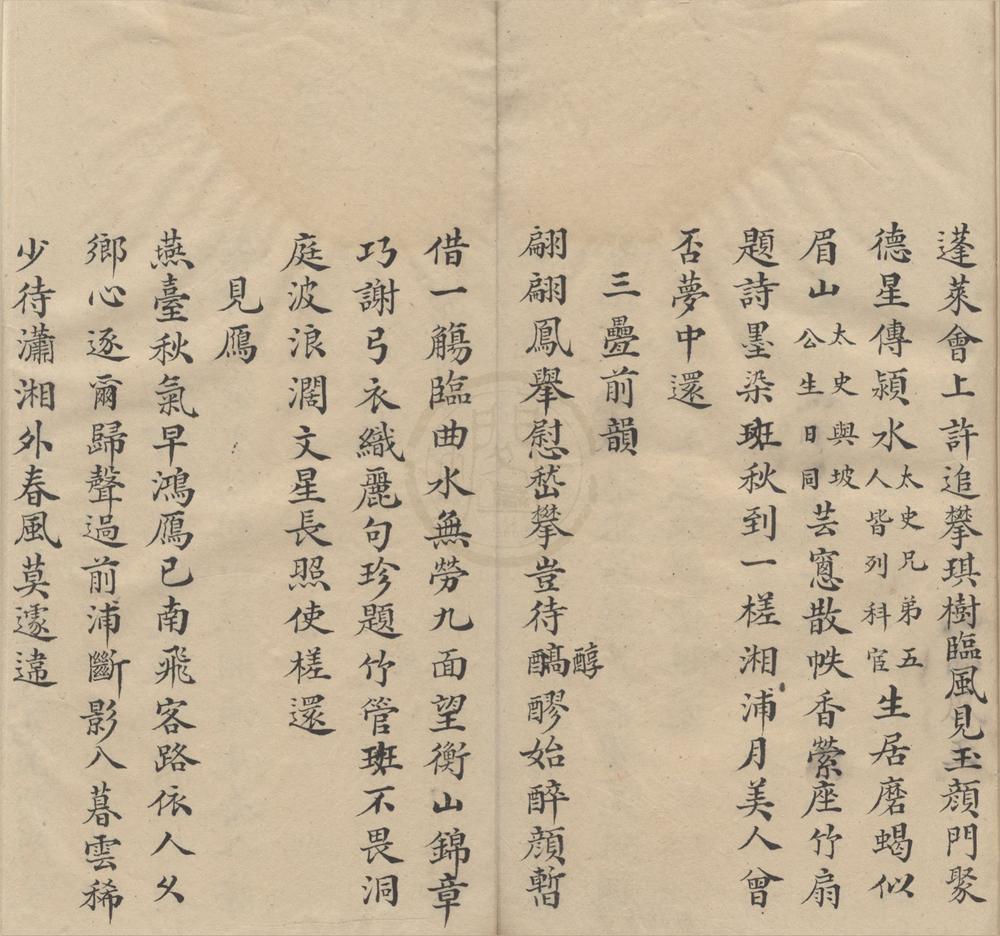 蓬萊會上許追攀琪樹臨風見玉顏門聚
德星傳潁水太史兄弟五人皆列科宦生居磨蝎似
眉山太史與坡公生日同芸窻散帙香縈座竹扇
題詩墨染斑秋到一槎湘浦月美人曾
否夢中還
三疊前韻
翩翩鳳舉慰嵆攀豈待醇醪始醉顏暫
借一觴臨曲水無勞九面望衡山錦章
巧謝弓衣織麗句珍題竹管斑不畏洞
庭波浪濶文星長照使槎還
見鴈
燕臺秋氣早鴻鴈已南飛客路依人久
鄉心逐爾歸聲過前浦斷影入暮雲稀
少待瀟湘外春風莫遽違